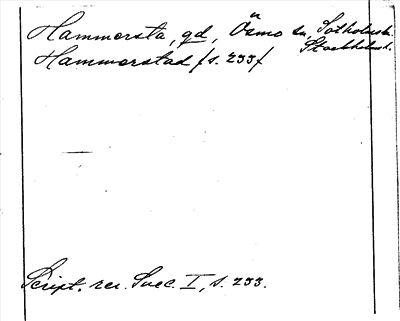 Hammersta, gd, Ösmo sn, Sotholms hd.
Stockholms l.
Hammerstad /s. 233/
Script. rer. Suec. I, s. 233.